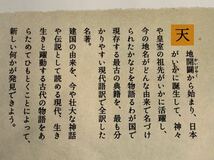 天
地開闢から始まり、日本
がいかに誕生して、神々
や皇室の祖先がいかに活躍し、
今の地名がどんな由来で名づけ
られたかなどを物語るわが国で
現存する最古の典籍を、最も分
かりやすい現代語訳で全訳した
名著。
建国の由来を、今や壮大な神話
や伝説として読める現代、生き
生きと躍動する古代の物語をあ
らためてひもとくことによって、
新しい何かが発見できよう。